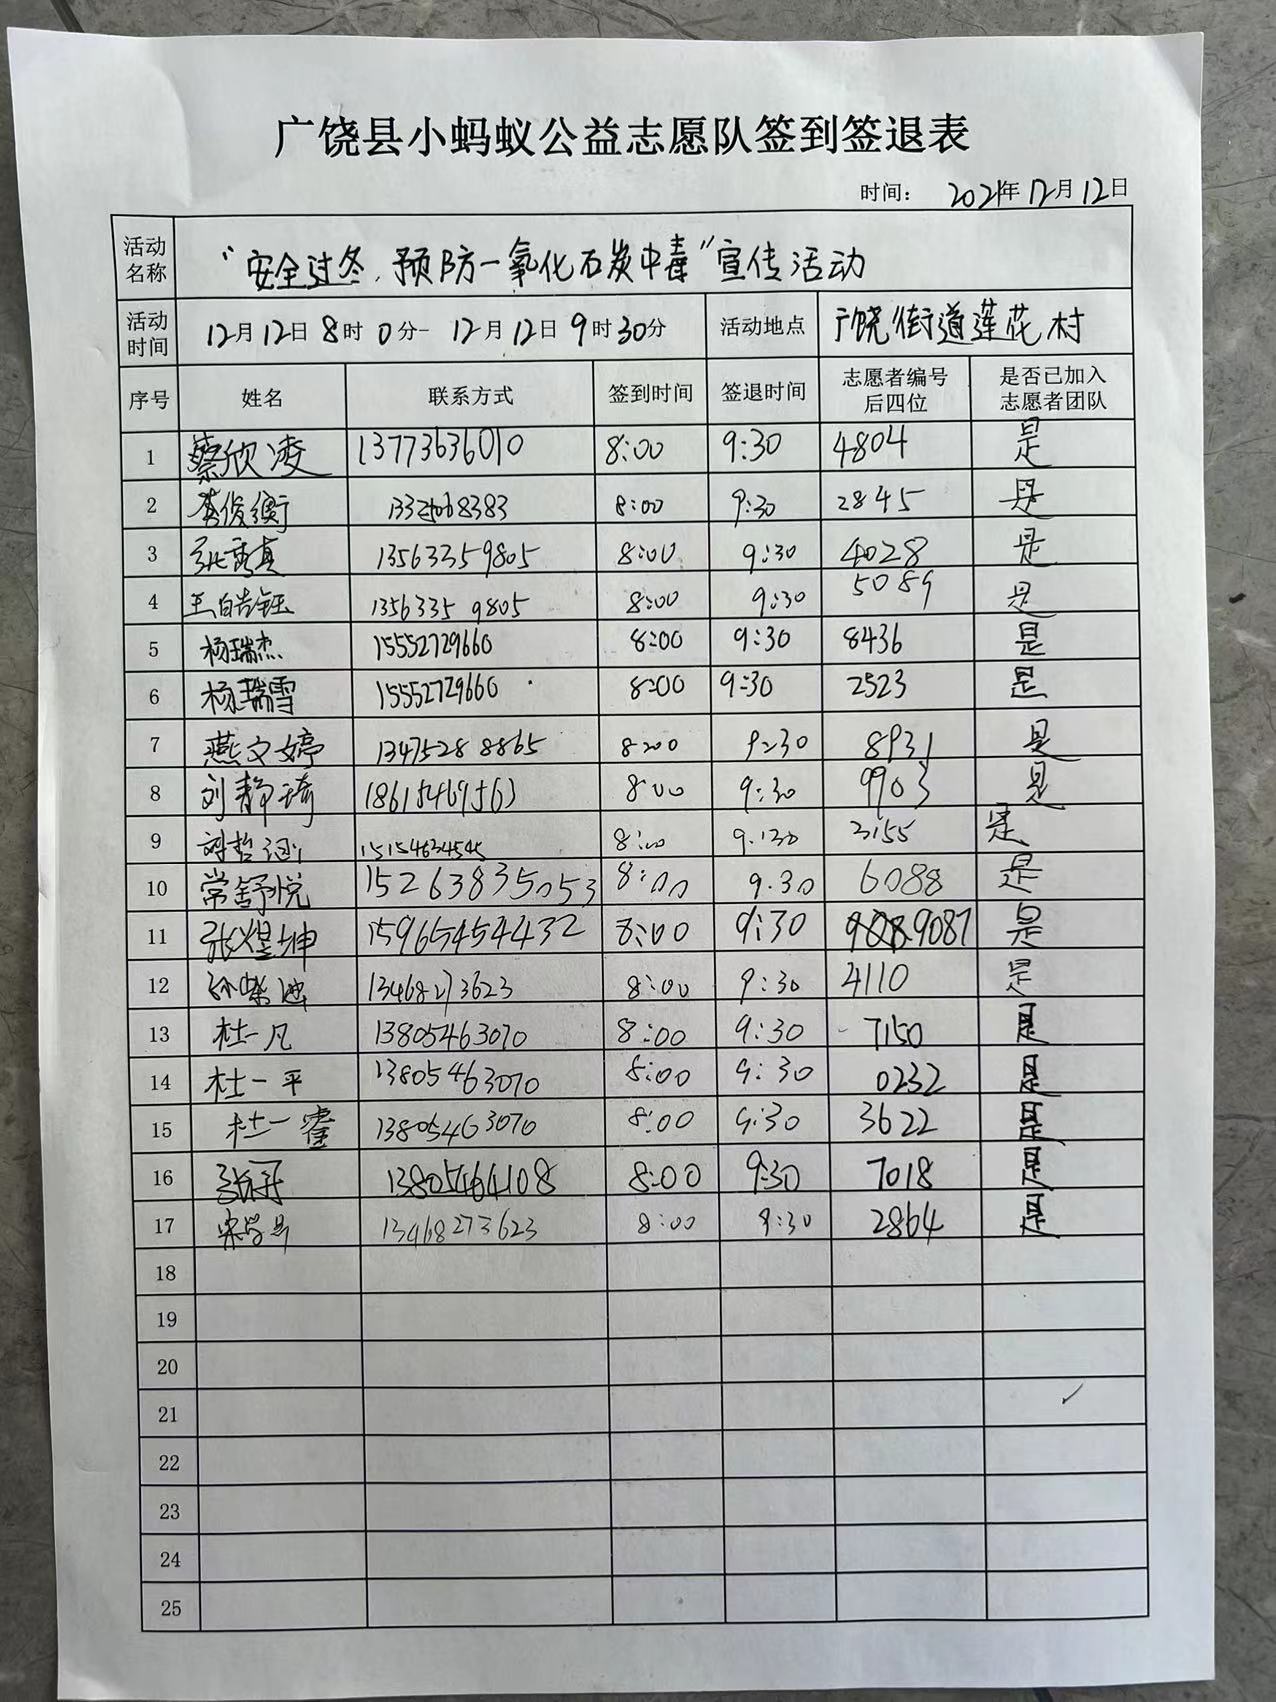 广饶县小蚂蚁公益志愿队签到签退表
时间： 2021年12月12日
活动名称 “安全过冬，预防一氧化石炭中毒”宣传活动
活动时间 12月12日8时0分-12月12日9时30分 活动地点 广饶街道莲花村
序号 姓名 联系方式 签到时间 签退时间 志愿者编号后四位 是否已加入志愿者团队
1 蔡欣凌 13773636010 8:00 9:30 4804 是
2 李俊衡 8:00 9:30 2845 是
3 张秀真 13563359805 8:00 9:30 4028 是
4 王皓钰 13563359805 8:00 9:30 5089 是
5 杨瑞杰 15552729660 8:00 9:30 8436 是
6 杨瑞雪 15552729660 8:00 9:30 2523 是
7 燕文婷 13475288865 8:00 9:30 8931 是
8 刘静琦 18615469563 8:00 9:30 9903 是
9 15154634545 8:00 9:30 3155 是
10 常舒悦 15263835053 8:00 9.30 6088 是
11 张煜坤 15965454432 8:00 9:30 9087 是
12 13468273623 8:00 9:30 4110 是
13 杜一凡 13805463070 8:00 9:30 7150 是
14 杜一平 13805463070 8:00 9:30 0232 是
15 杜一霍 13805463070 8:00 9:30 3622 是
16 13805464108 8:00 9:30 7018 是
17 13468273623 8:00 9:30 2864 是
18
19
20
21
22
23
24
25